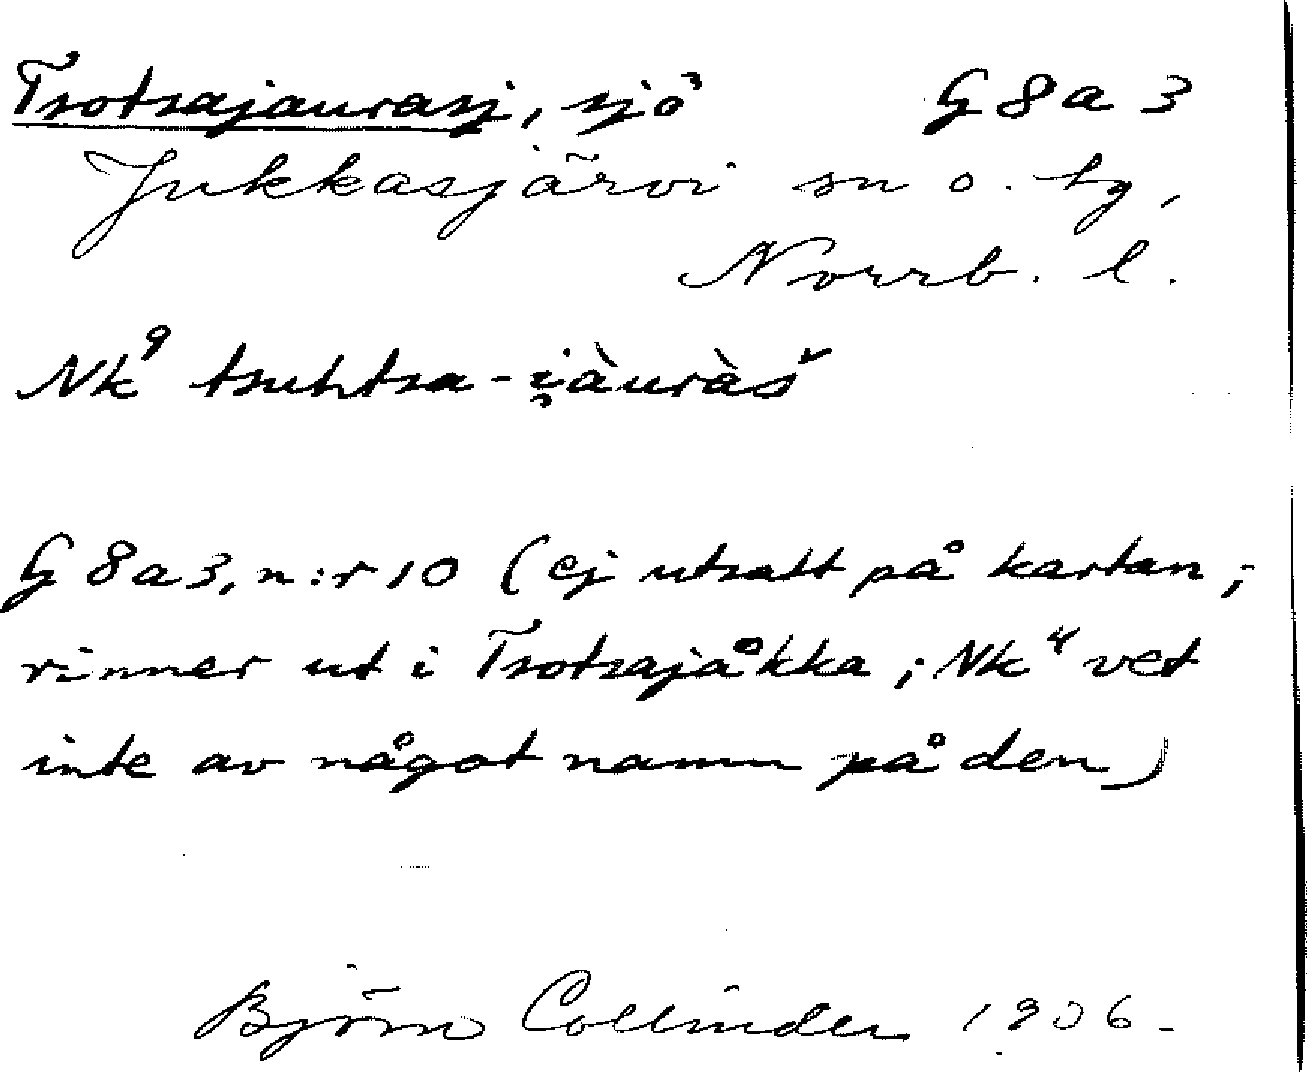 Tsotsajaurasj, sjö G8a3
Jukkasjärvi sn o. tg,
Norrb. l.
Nk⁹ tsuhtsa-i̯àuràš
G8a3, n:r 10 (ej utsatt på kartan;
rinner ut i Tsotsajåkka; Nk⁴ vet
inte av något namn på den)
Björn Collinder 1906.